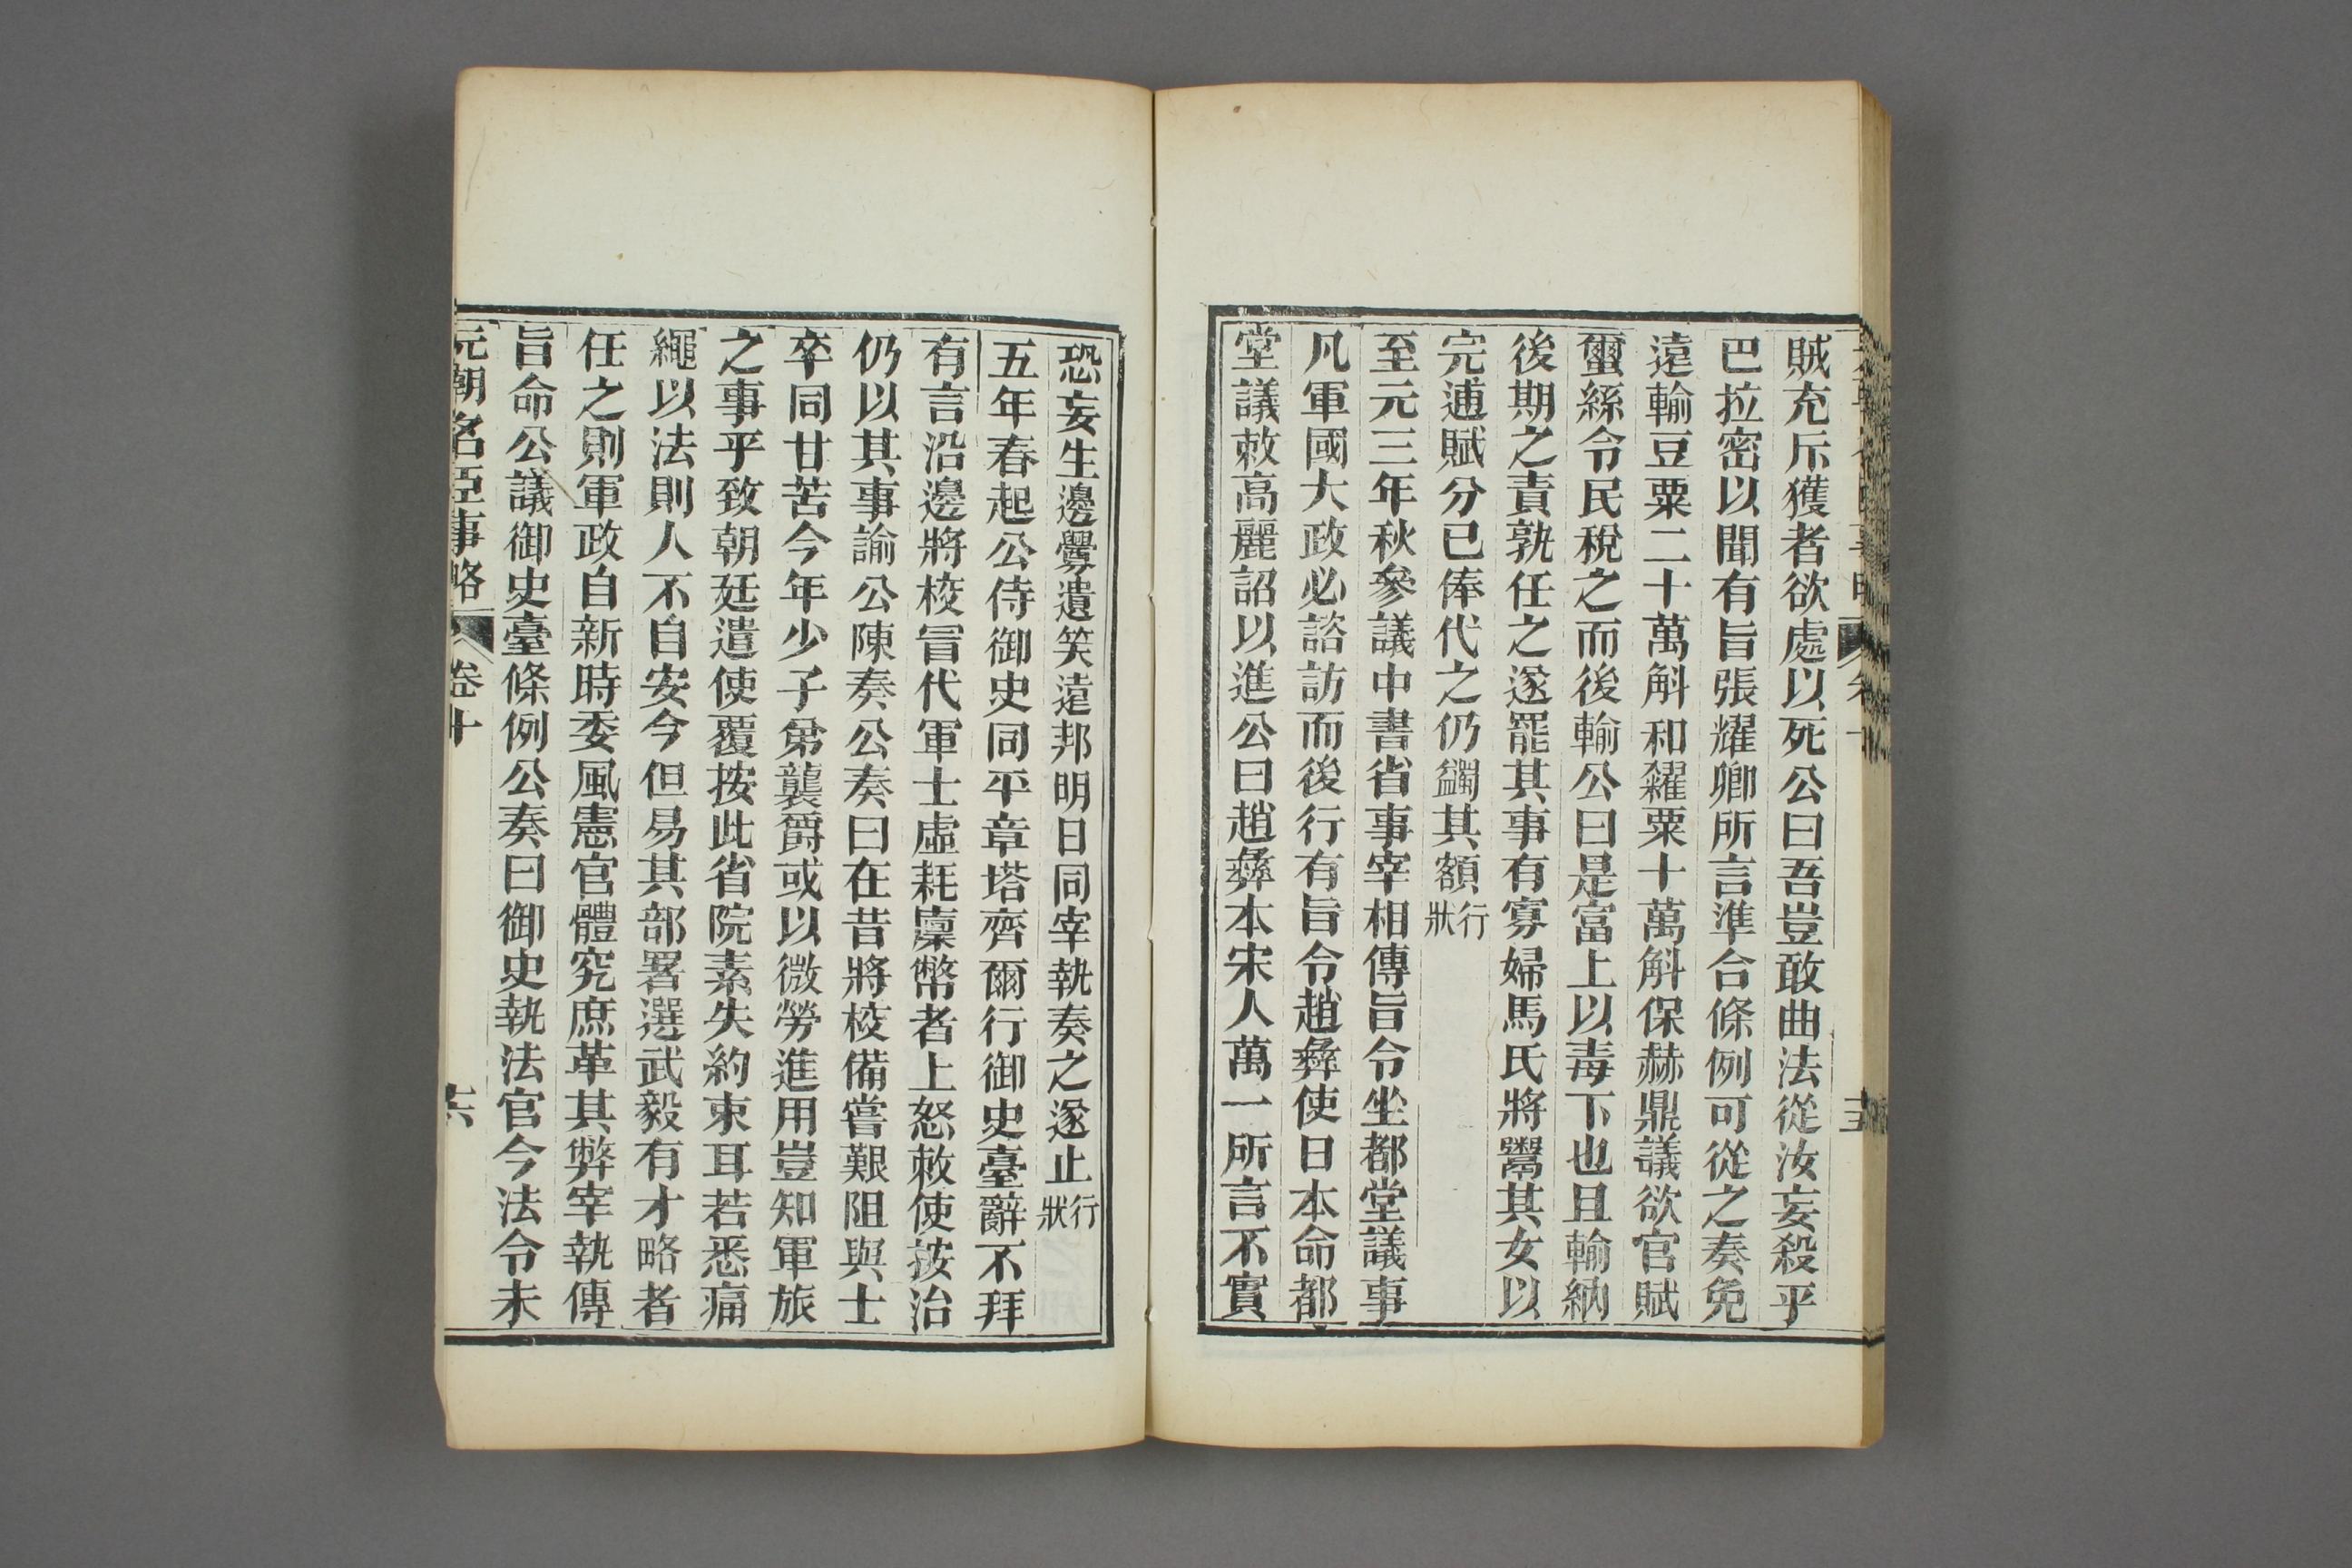 賊充斥獲者欲處以死公曰吾豈敢曲法從汝妄殺乎
巴拉密以聞有旨張耀卿所言準合條例可從之奏免
遠輸豆粟二十萬斛和糴粟十萬斛保赫鼎議欲官賦
蠒絲令民稅之而後輸公曰是富上以毒下也且輸納
後期之責孰任之遂罷其事有寡婦馬氏將鬻其女以
完逋賦分已俸代之仍蠲其額行狀
至元三年秋參議中書省事宰相傳旨令坐都堂議事
凡軍國大政必諮訪而後行有旨令趙彝使日本命都
堂議敕高麗詔以進公曰趙彝本宋人萬一所言不實
恐妄生邊釁遺笑遠邦明日同宰執奏之遂止行狀
五年春起公侍御史同平章塔齊爾行御史臺辭不拜
有言沿邊將校冒代軍士虛耗廩幣者上怒敕使按治
仍以其事諭公陳奏公奏曰在昔將校備嘗艱阻與士
卒同甘苦今年少子弟襲爵或以微勞進用豈知軍旅
之事乎致朝廷遣使覆按此省院素失約束耳若悉痛
繩以法則人不自安今但易其部署選武毅有才略者
任之則軍政自新時委風憲官體究庶革其弊宰執傳
旨命公議御史臺條例公奏曰御史執法官今法令未
元朝名臣事略 卷十 十六